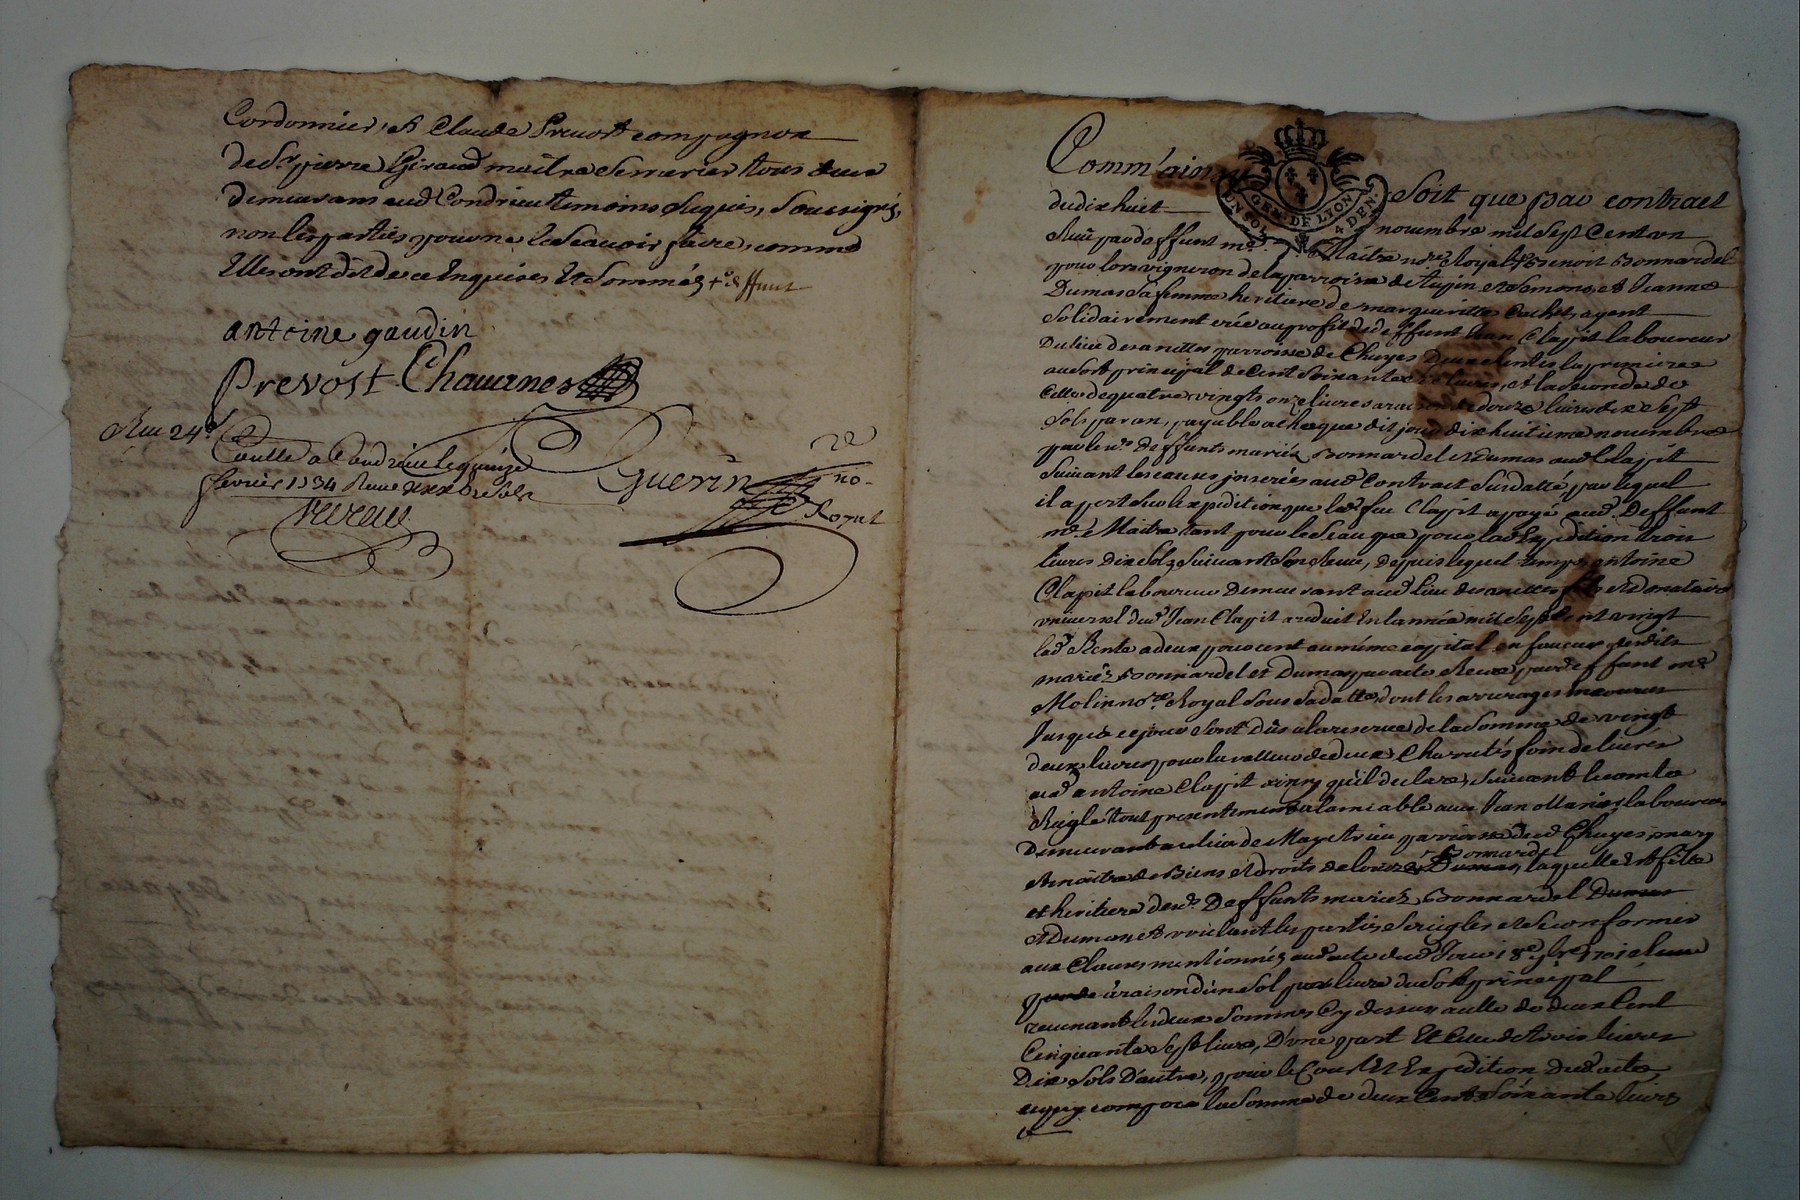 Cordonnier, et Claude Prevost compagnon
de Sr. pierre Giraud maître Serrurier tous deux
demeurans aud Condrieu temoins Requis, Soussignés,
non les parties pour ne le Scavoir faire, comme
Elles ont dit de ce Enquises Et Sommés + deffunt
antoine gaudin
Prevost Chauvines
Guerin
no.
Royal
Reçu 24 s
Controllé a Condrieu le quinze
fevrier 1734 Receu
Comm'ainsy Soit que par contract
du dix huit novembre mil Sept Cent un
GEN. DE LYON
UN SOL 4 DEN.
Reçu par deffunt me. Maitre nore. Royal, Benoit Bonnardel
pour lors vigneron de la parroisse de tupin et Semons, et Jeanne
Dumas Sa femme heritiere de margueritte Cachet, ayent
Solidairement créé au profit de deffunt Jean Clapit laboureur
du lieu des arettes parroisse de Chuyes Deux Rentes la premiere
au Sort principal de Cent Soixante livres, et la Seconde de
Celle de quatre vingts onze livres a raison de douze livres dix Sept
Sols par an, payable a chaque dit jour dix huitieme novembre
par lesd. Deffunts mariéz Bonnardel et Dumas aud Clapit
Suivant les causes inserées aud Contrait Susdatté, par lequel
il apert Sur l'expedition que led feu Clapit a payé aud. Deffunt
me. Maitre tant pour le Seau que pour lad Expedition trois
livres dix Sols Suivant Son Receu, depuis lequel temps antoine
Clapit laboureur Demeurant aud lieu des arettes fils et donataire
universel dud Jean Clapit a reduit En l'année mil Sept Cent vingt
lad Rente a deux pour cent au même capital en faveur desdits
mariéz Bonnardel et Dumas par acte Receu par deffunt me
Molin nore. Royal Sous Sa datte, dont les arrerages encourus
Jusqu'a ce jour Sont Dûs a la reserve de la Somme de vingt
deux livres pour la valleur de deux Charretés foin delivrés
aud antoine Clapit ainsy qu'il declare, Suivant le comte
Reiglé tout presentement a l'amiable avec Jean Mariez laboureur
Demeurant au lieu de parroisse dud Chuyes mary
et maitre de Biens et droits de Bonnardel Dumas, laquelle Est fille
et heritiere desd. Deffunts mariéz Bonnardel Dumas
et Dumas Et voulant les parties Se regler et Se conformer
aux Clauses mentionnés aud acte dud Jour 18e 9bre 1701
a raison d'un Sol par livre du Sort principal
revenant les deux Sommes Cy dessus a celle de deux Cent
Cinquante Sept livres, D'une part Et Celle de trois livres
Dix Sols D'autre, pour le Cout Et Expedition dud acte,
ce qui compose la Somme de deux Cent Soixante livres